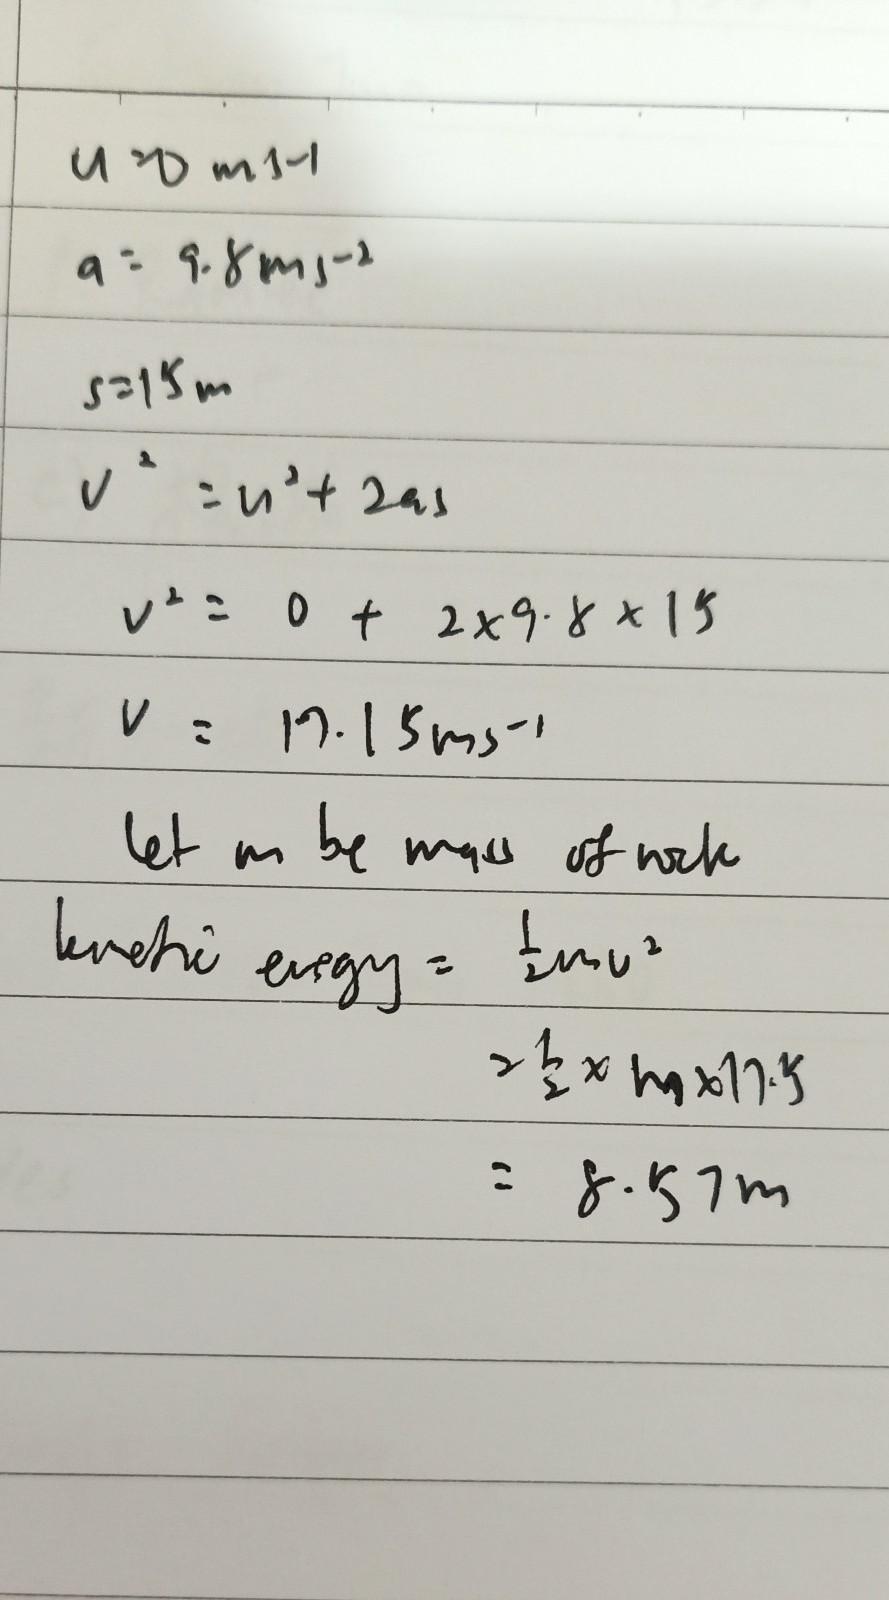 u=0 ms-1
a= 9.8ms-2
s=15m
v² =u²+ 2as
v²= 0 + 2x9.8x15
v = 17.15ms-1
let m be mass of rock
kinetic energy= ½mv²
=½x m x17.5
= 8.57m